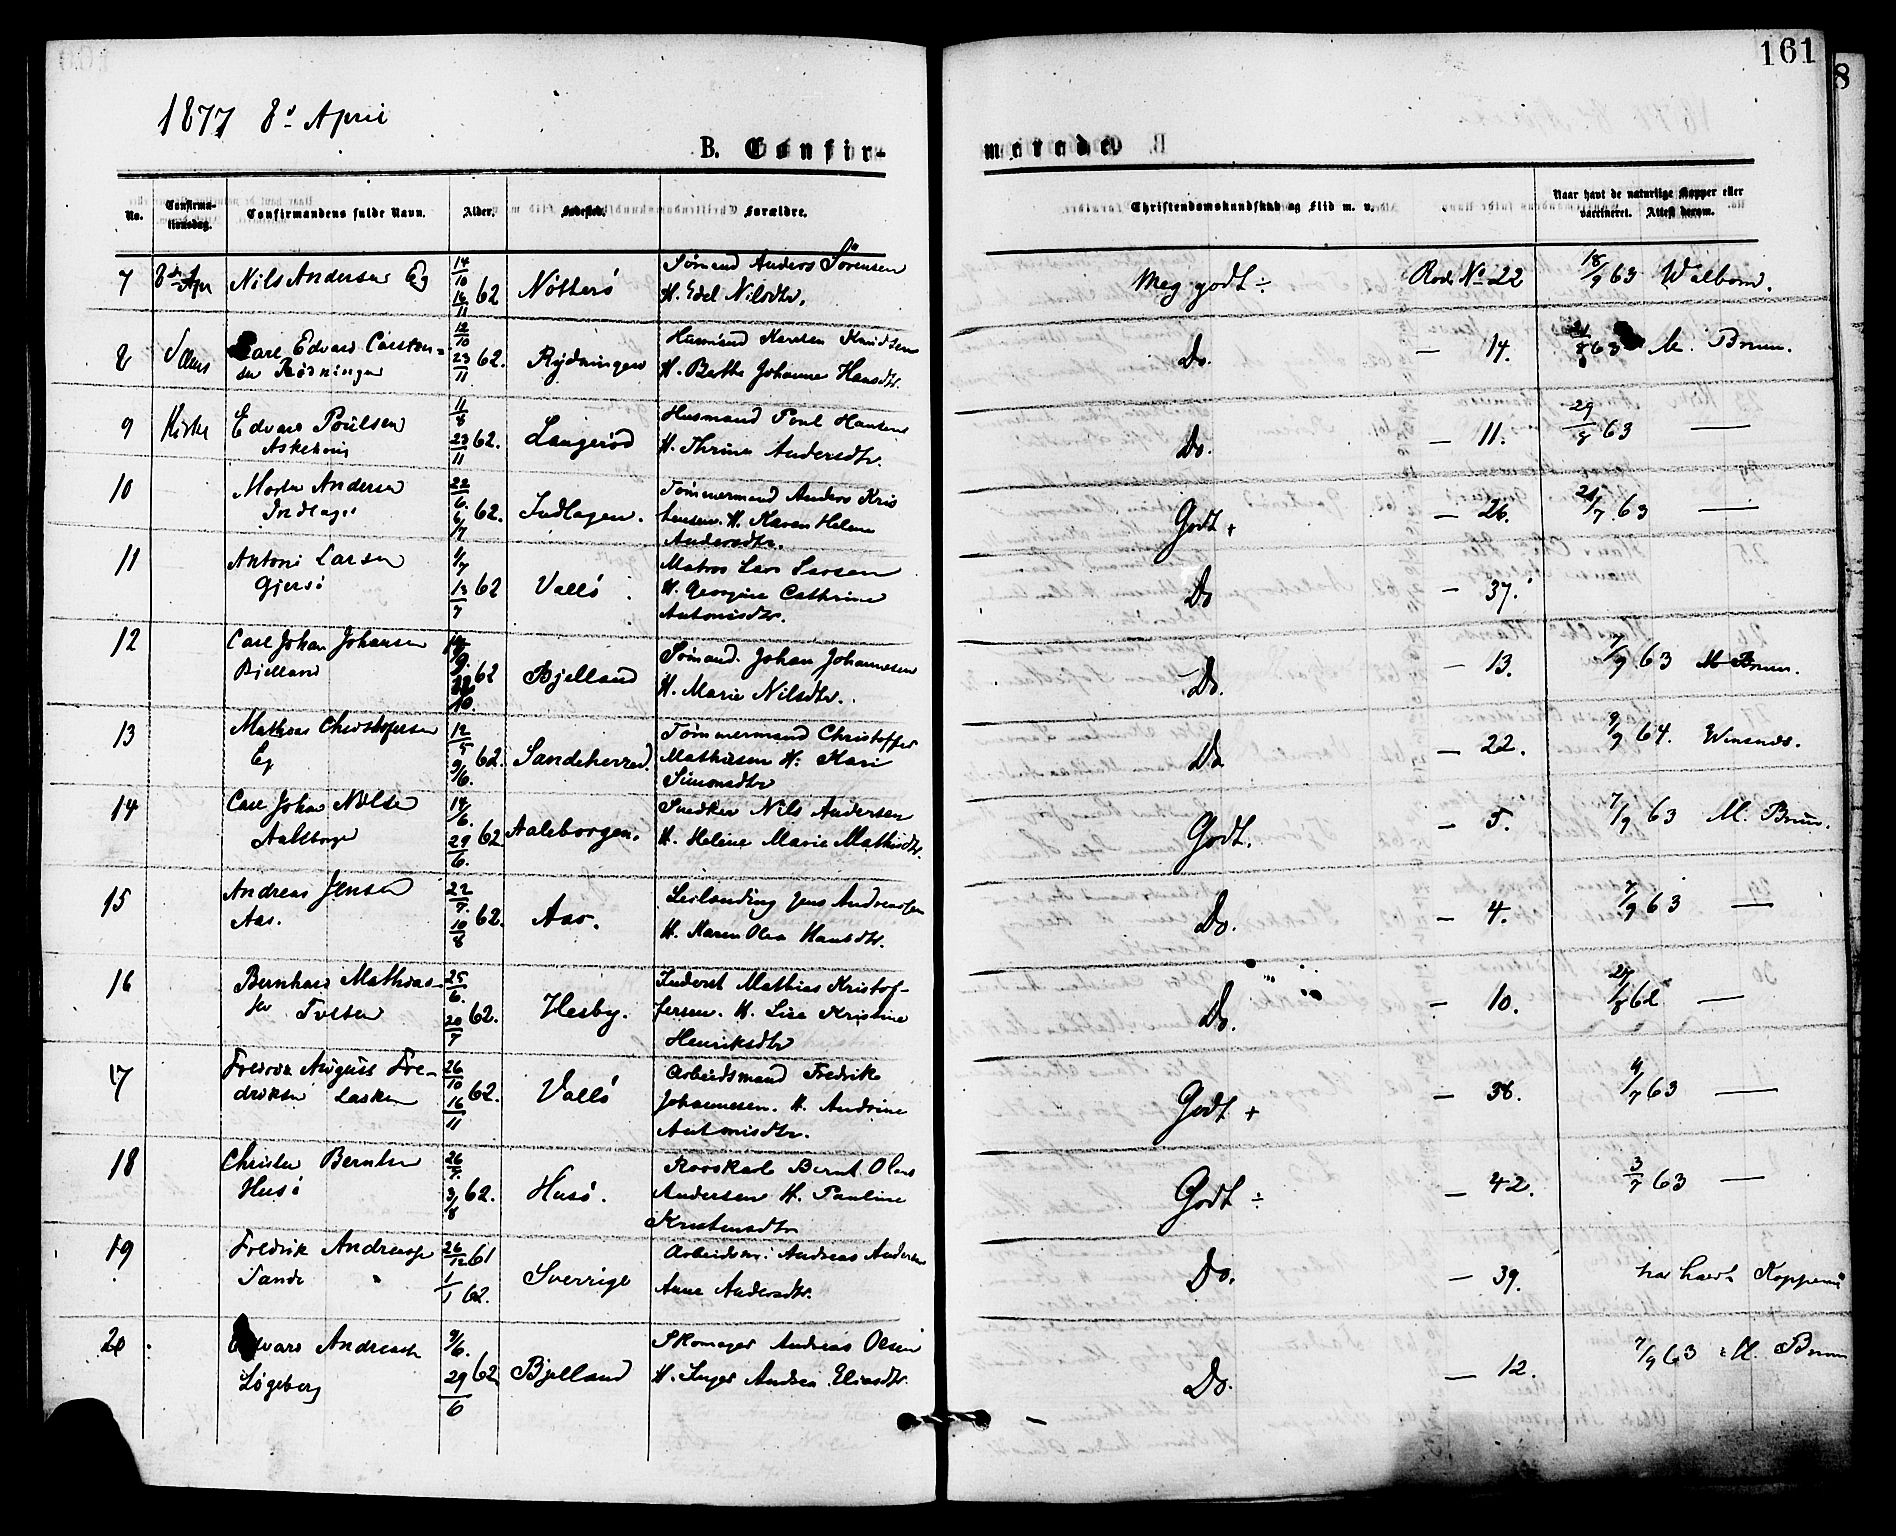 161
8
1877 8de April
B. Confir-
merede
No.
Confirma-
tionsdag.
Confirmandens fulde Navn.
Alder.
Fødested.
Forældre.
Christendomskundskab og Flid m. v.
Naar havt de naturlige Kopper eller
vaccineret. Attest derom.
7 8de Apr Nils Andersen Eg 14/10 16/11 62 Nötterö Sömand Anders Sörensen
H. Edel Nilsdtr.
Meg godt ÷ Rode No 22 18/9 63 Walbom.
8 Sems Carl Edvard Carsten=
sen Rödningen 12/10 23/11 62. Rydningen Husmand Karsten Knudsen
H. Berthe Johanne Hansdtr.
Do. — 14. 63 M. Bruun.
9 Kirke Edvard Poulsen
Askehoug 11/8 23/11 62. Langeröd Husmand Poul Hansen
H. Thrine Andersdtr.
Do. — 11. 29/8 63 —
10 Morten Andersen
Indlagen 22/6. 6/7 62. Indlagen. Tömmermand Anders Kris
tensen. H. Karen Helene
Andersdtr.
Godt + — 26. 63 —
11 Antoni Larsen
Gjersö 4/7 13/7 62 Vallö Matros Lars Larsen
H. Georgine Cathrine
Antonisdtr.
Do — 37.
12 Carl Johan Johansen
Bjelland 62 Bjelland Sömand. Johan Johannesen
H. Marie Nilsdtr.
Do. — 13. 7/9 63 M Bruun.
13 Mathias Christofersen
Eg 12/5 9/6. 62. Sandeherred. Tömmermand Christoffer
Mathiesen H. Kari
Simonsdtr
Do — 22. 9/9 64.
14 Carl Johan Nilsen
Aaleborgen 14/6. 29/6. 62 Aaleborgen. Snedker Nils Andersen
H. Helene Marie Mathisdtr.
Godt. — 5. 7/9 63 M. Bruun.
15 Andreas Jensen
Aas. 22/7. 10/8 62. Aas. Leilending Jens Andreassen
H. Maren Olea Hansdtr.
Do. — 4. 7/9 63 —
16 Bernhard Mathias-
sen 25/6. 20/7 62. Hesby. Inderst Mathias Kristof-
fersen. H. Lise Kristine
Henriksdtr
Do. — 10. 62 —
17 Fredrik August Fre-
driksen 26/10 16/11 62. Vallö Arbeidsmand Fredrik
Johannesen. H. Andrine
Antonisdtr.
Godt + — 38. 63 —
18 Christen Berntsen
Husö 26/7. 3/8 62. Husö. Rorskarl Bernt Olaus
Andersen H. Pauline
Kristensdtr
Godt ÷ — 42. 3/7 63 —
19 Fredrik Andreassen
Sande 26/12 61 1/1 62. Sverrige Arbeidsm. Andreas Andersen
Anne Andersdtr.
Do. — 39. har havt Kopperne
20 Edvard Andreassen
Lögeberg 9/6. 29/6 62 Bjelland Skomager Andreas Olsen
H. Inger Andrea Eliasdtr.
Do. — 12. 7/9 63 M. Bruun